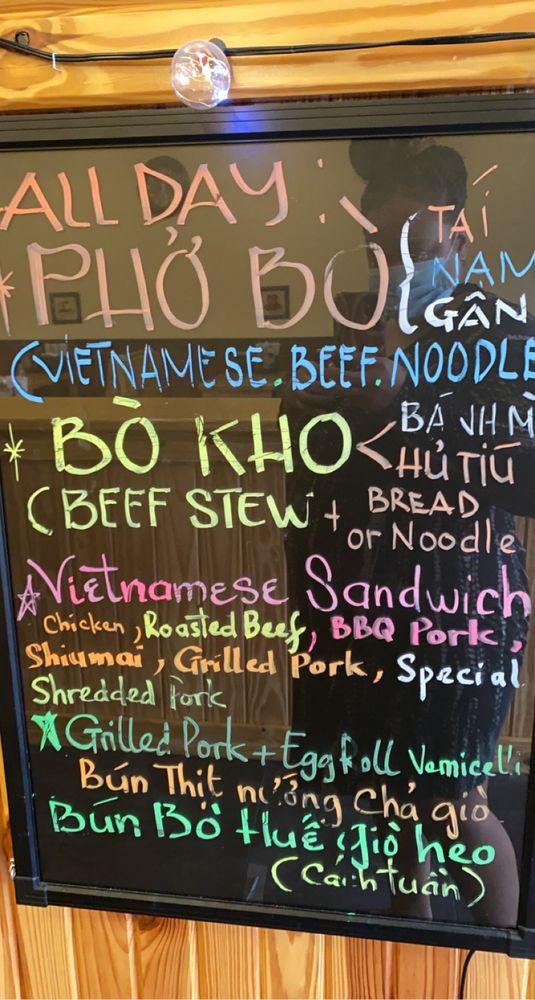 ALL DAY :
* PHỞ BÒ { TÁI
NẠM
GÂN
(VIETNAMESE. BEEF. NOODLE
* BÒ KHO < BÁNH M
HỦ TIÚ
(BEEF STEW + BREAD
or Noodle
Vietnamese Sandwich
Chicken, Roasted Beef, BBQ Pork,
Shiumai, Grilled Pork, Special
Shredded Pork
Grilled Pork + Egg Roll Vamicelli
Bún Thịt nướng chả giò
Bún Bò Huế giò heo
(Cánh tuần)